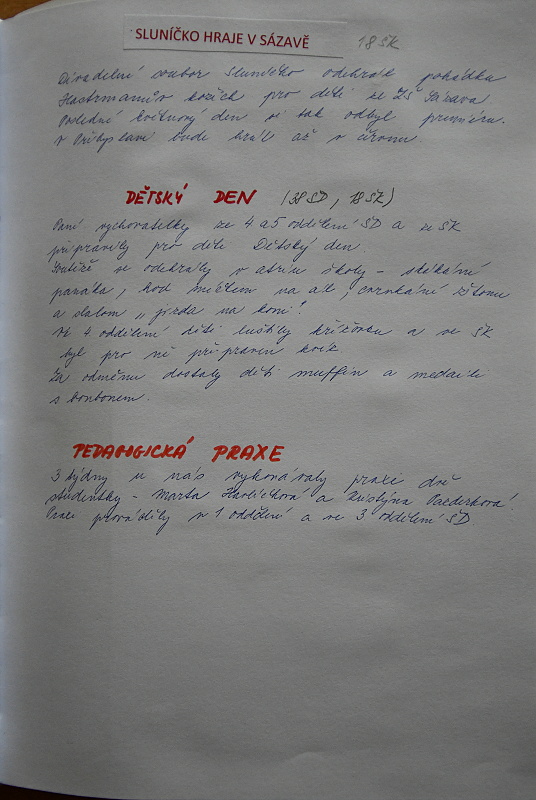 SLUNÍČKO HRAJE V SÁZAVĚ 18 ŠK
Divadelní soubor Sluníčko odehrál pohádku
Hastrmanův kožich pro děti ze ZŠ Sázava.
Poslední květnový den si tak odbyl premiéru.
V Přibyslavi bude hrát až v červnu.
DĚTSKÝ DEN (38 ŠD, 18 ŠK)
Paní vychovatelky ze 4 a 5 oddělení ŠD a ze ŠK
připravily pro děti Dětský den.
Soutěže se odehrály v atriu školy - skákání
panáka, hod míčkem na cíl, cvrnkání
a slalom „jízda na koni".
Ve 4 oddělení děti luštily křížovku a ve ŠK
byl pro ně připraven kvíz.
Za odměnu dostaly děti muffin a medaili
s bonbonem.
PEDAGOGICKÁ PRAXE
3 týdny u nás vykonávaly praxi dvě
studentky - Marta Havlíčková a Kristýna
Praxi prováděly v 1 oddělení a ve 3 oddělení ŠD